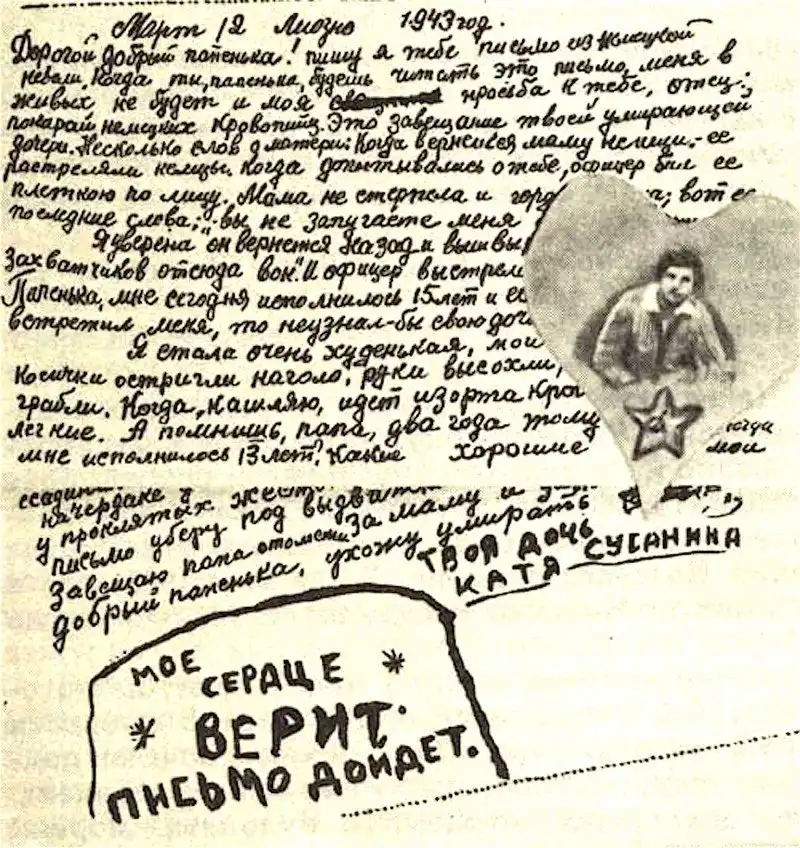 Март 12 Лиозно 1943 год.
Дорогой добрый папенька! пишу я тебе письмо из немецкой
неволи. Когда ты, папенька, будешь читать это письмо, меня в
живых не будет и моя просьба к тебе, отец:
покарай немецких кровопийц. Это завещание твоей умирающей
дочери. Несколько слов о матери: Когда вернешься маму не ищи,- ее
растреляли немцы. Когда допытывались о тебе, офицер бил ее
плеткою по лицу. Мама не стерпела и горд а; вот ее
последние слова; "вы не запугаете меня
Я уверена он вернется назад и вышвы
Захватчиков отсюда вон". И офицер выстрели
Папенька, мне сегодня исполнилось 15 лет и ес
встретил меня, то неузнал-бы свою доч
Я стала очень худенькая, мои
косички остригли наголо, руки высохли,
грабли. Когда, кашляю, идет изо рта кров
легкие. А помнишь, папа, два года тому когда
мне исполнилось 13 лет? Какие хорошие мои
ссадин
на чердаке у
у проклятых жест
письмо уберу под
Завещаю папа отомсти за маму и
добрый папенька, ухожу умирать
ТВОЯ ДОЧЬ
КАТЯ СУСАНИНА
МОЕ
СЕРДЦЕ
ВЕРИТ:
ПИСЬМО ДОЙДЕТ.